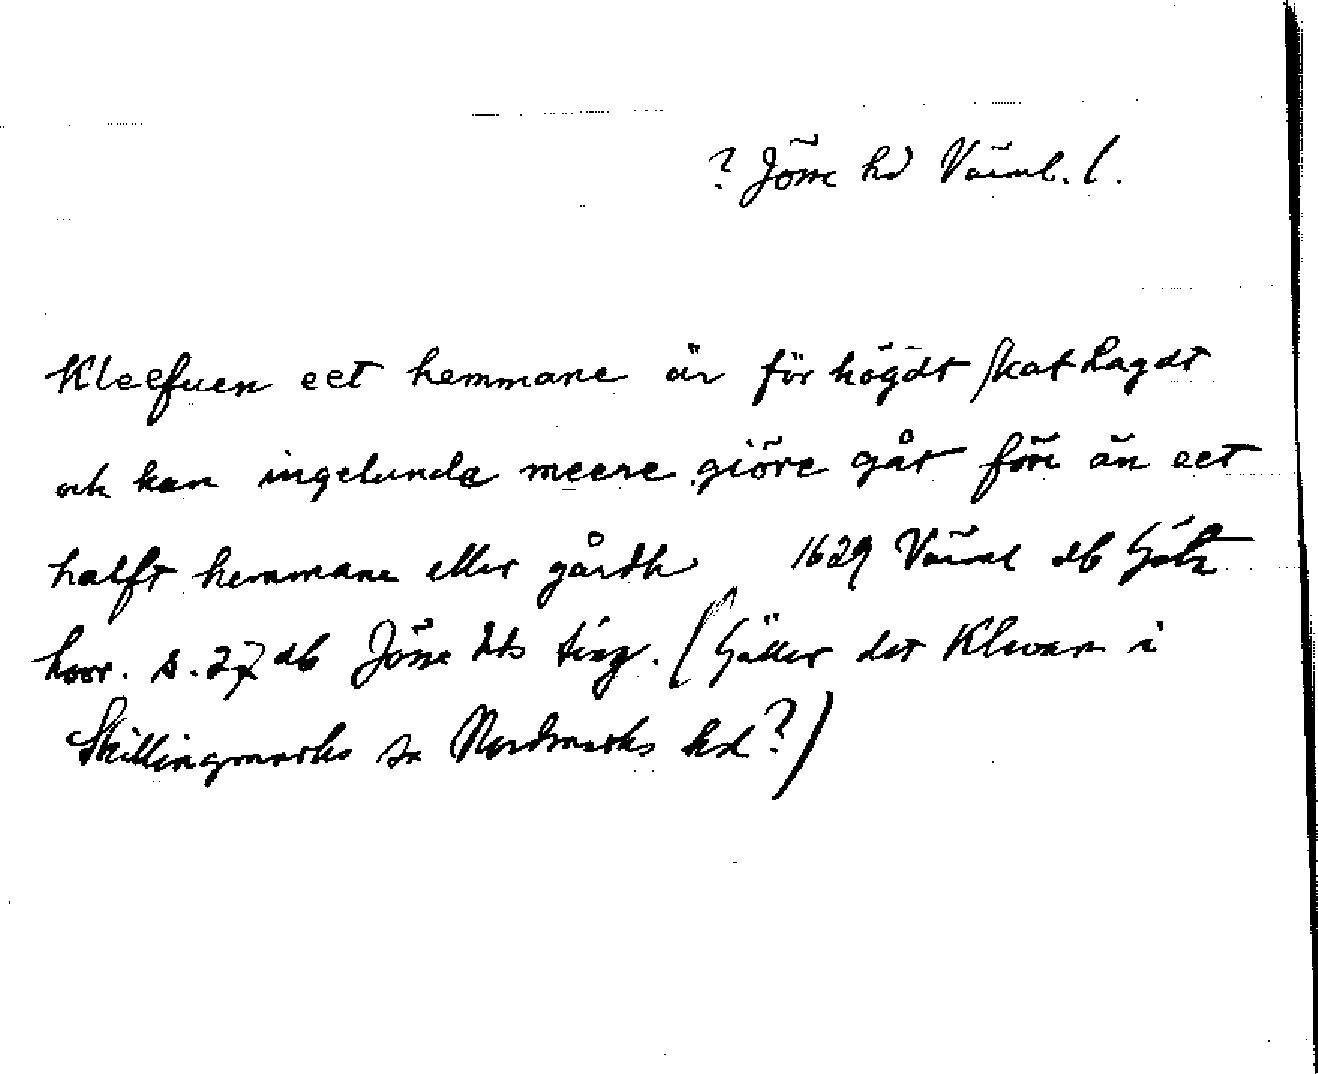 ? Jösse hd Värml. l.
Kleefuen eet hemmane är för högdt skat lagdt
och kan ingelunda meere giöre gåt före än eet
halft hemmane eller gårdh 1629 Värml db Göta
hovr. s. 27 db Jösse hds ting. (Gäller det Klevan i
Skillingmarks sn Nordmarks hd?)